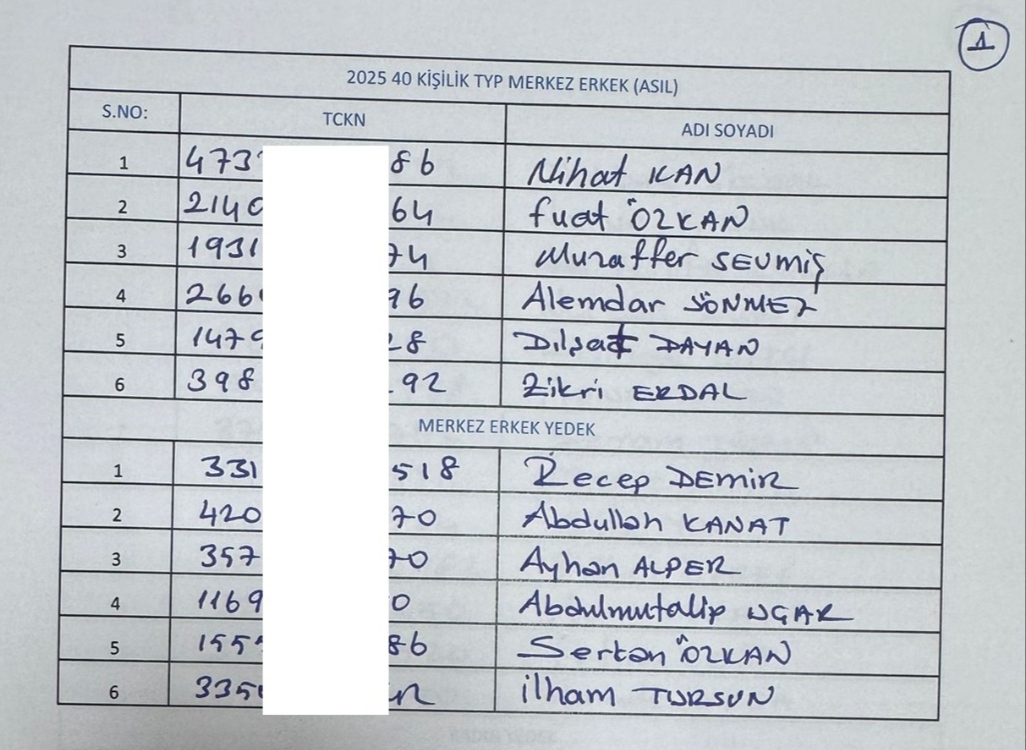 1
2025 40 KİŞİLİK TYP MERKEZ ERKEK (ASIL)
S.NO: TCKN ADI SOYADI
1 473 86 Nihat KAN
2 2140 64 fuat ÖZKAN
3 1931 74 Muzaffer SEVMİŞ
4 266 96 Alemdar SÖNMEZ
5 1479 28 Dilşat DAYAN
6 398 92 Zikri ERDAL
MERKEZ ERKEK YEDEK
1 331 518 Recep DEMİR
2 420 70 Abdullah KANAT
3 357 70 Ayhan ALPER
4 1169 0 Abdulmutalip UÇAR
5 155 86 Sertan ÖZKAN
6 335 ilham TURSUN